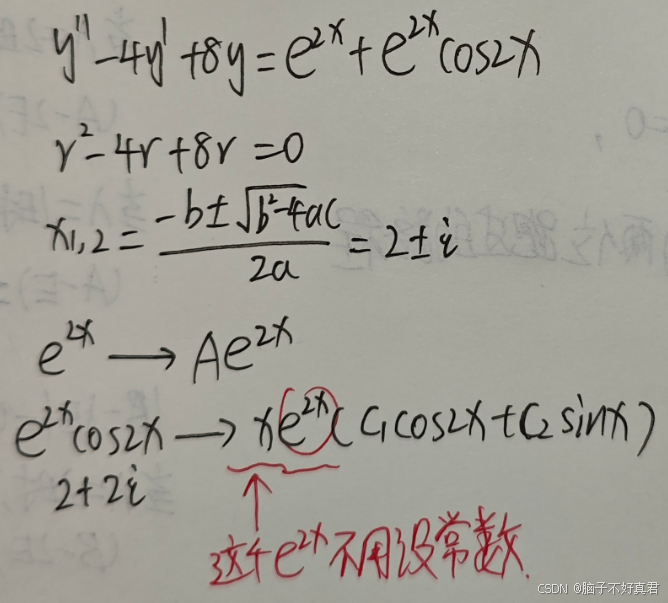 y''-4y'+8y=e^{2x}+e^{2x}cos2x
r²-4r+8r=0
x_{1,2}=\frac{-b±\sqrt{b²-4ac}}{2a}=2±i
e^{2x}→Ae^{2x}
e^{2x}cos2x→xe^{2x}(C₁cos2x+C₂sinx)
2+2i
这个e^{2x}不用设常数.
CSDN @脑子不好真君